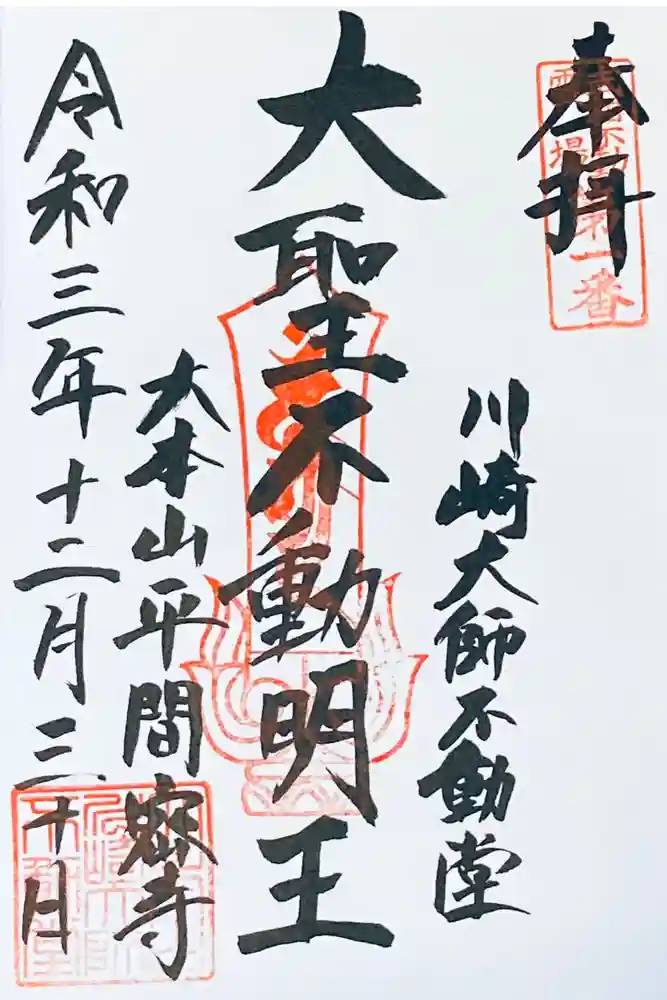 奉拝
一番
川崎大師不動堂
大聖不動明王
大本山平間寺
令和三年十二月三十日